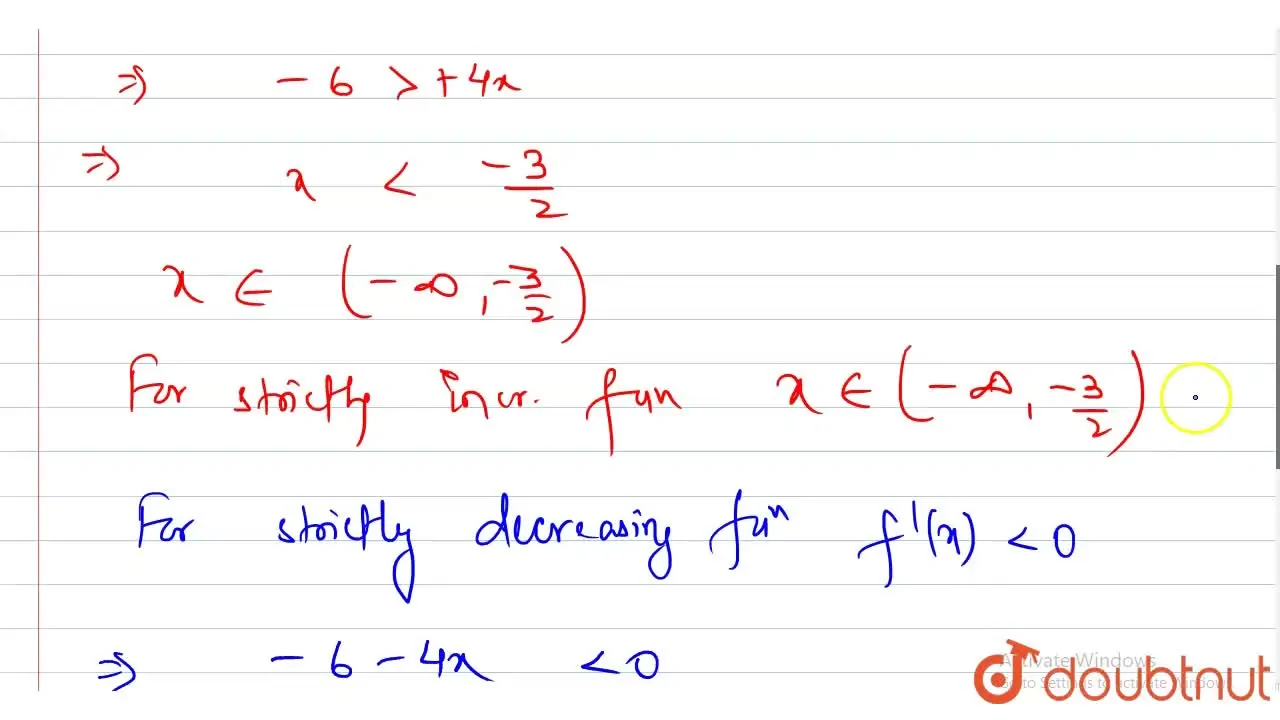 ⇒ - 6 > + 4x
⇒ x < -3/2
x ∈ (-∞, -3/2)
For strictly incr. fun x ∈ (-∞, -3/2)
For strictly decreasing fuⁿ f'(x) < 0
⇒ - 6 - 4x < 0
Activate Windows
Go to Settings to activate Windows.
doubtnut